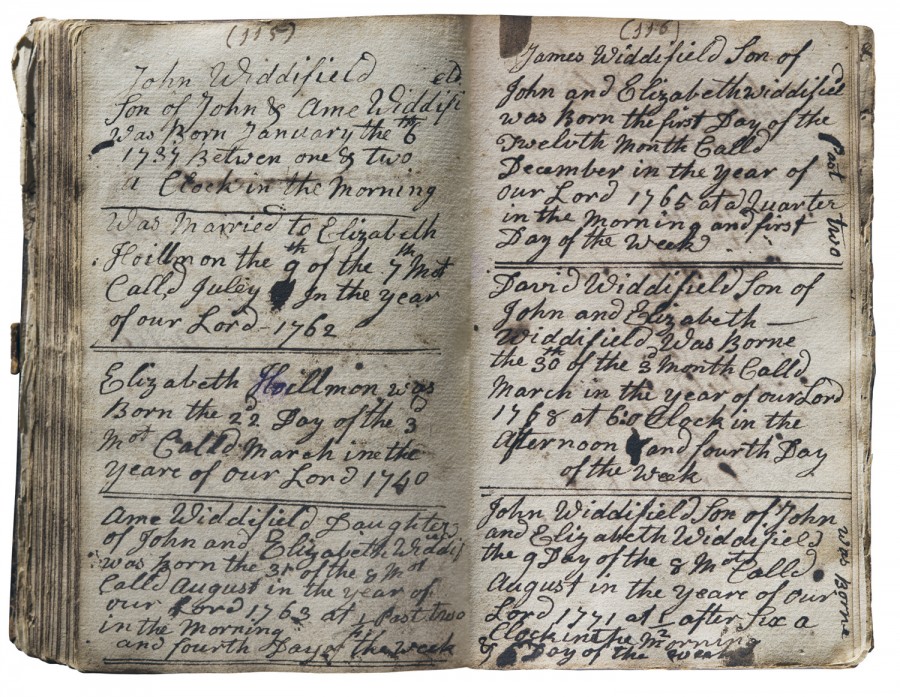 (115)
John Widdifield
Son of John & Ame Widdifield
Was Born January the 6th
1737 Betwen one & two
a Clock in the Morning
Was Married to Elizabeth
Hoillmon the 9th of the 7th Mot
Calld Juley In the year
of our Lord - 1762
Elizabeth Hoillmon was
Born the 22d Day of the 3d
Mot Calld March in the
Yeare of our Lord 1740
Ame Widdifield Daughter
of John and Elizabeth Widdifield
was Born the 31 of the 8 Mot
Calld August in the year of
our Lord 1763 at 1/2 Past two
in the Morning
and fourth Day of the Week
(116)
James Widdifield Son of
John and Elizabeth Widdifield
was Born the first Day of the
Twelvth Month Calld
December in the year of
our Lord 1765 at a Quarter
Past two
in the Morning and first
Day of the Week
David Widdifield Son of
John and Elizabeth
Widdifield Was Borne
the 30th of the 3d Month Calld
March in the year of our Lord
1768 at 6 o Clock in the
Afternoon and fourth Day
of the Week
John Widdifield Son of John
and Elizabeth Widdifield
was Borne
the 9 Day of the 8 Mot Calld
August in the yeare of our
Lord 1771 at after Six a
Clock in the Morning
Day of the week